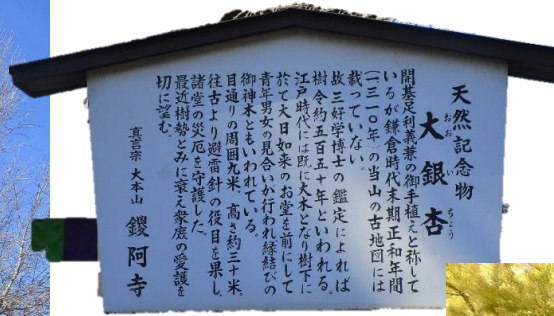 天然記念物
大銀杏
おおいちょう
開基足利義兼の御手植えと称して
いるが鎌倉時代末期正和年間
(一三一〇年)の当山の古地図には
載っていない。
故三好学博士の鑑定によれば
樹令約五百五十年といわれる。
江戸時代には既に大木となり樹下に
於て大日如来のお堂を前にして
青年男女の見合いが行われ縁結びの
御神木ともいわれている。
目通りの周囲九米、高さ約三十米。
往古より避雷針の役目を果し、
諸堂の災厄を守護した。
最近樹勢とみに衰え衆庶の愛護を
切に望む。
真言宗 大本山 鑁阿寺